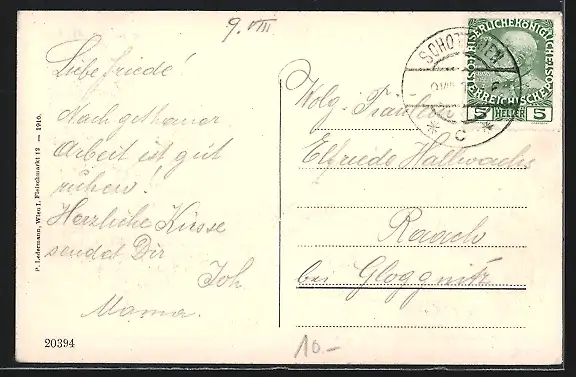 9. VIII
Liebe Friede!
Nach gethaner
Arbeit ist gut
ruhen!
Herzliche Küsse
sendet Dir
Joh
Mama.
P. Ledermann, Wien I, Fleischmarkt 12 — 1910.
20394
SCHOTTWIEN
* C *
KAISERLICHEKÖNIGLICHE
ÖSTERREICHISCHE
5 HELLER 5
Wolg. Fräulein
Elfriede Hallwachs
Raach
bei Gloggnitz
10.-